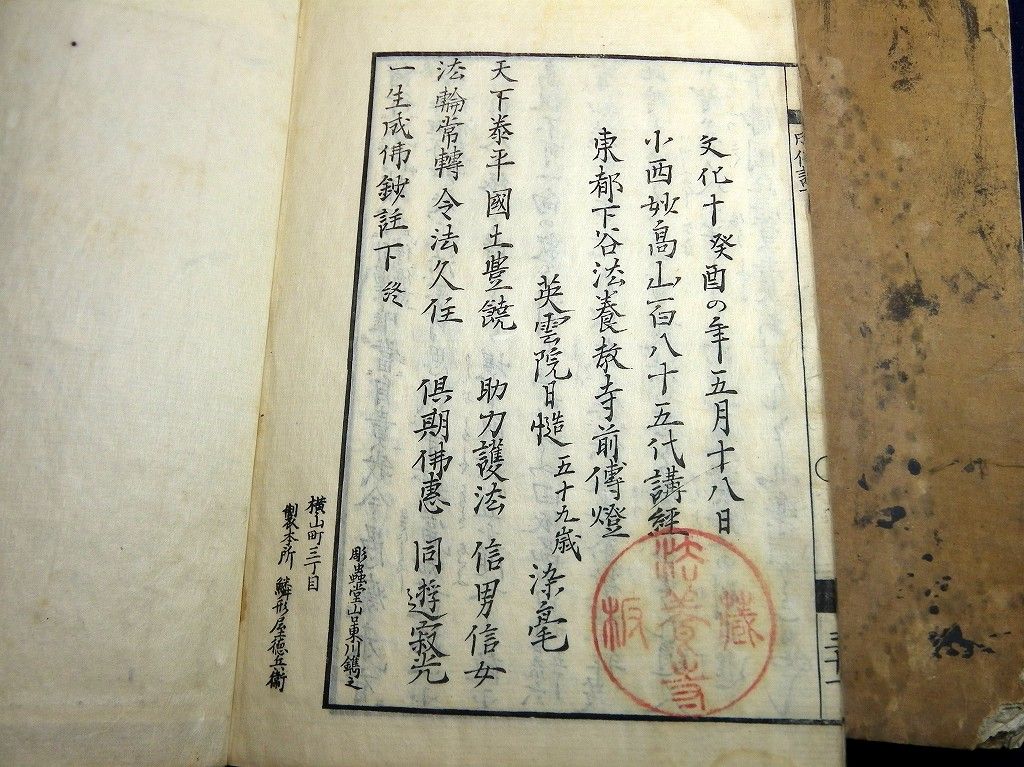 文化十癸酉の年五月十八日
小西妙高山一百八十五代講経
東都下谷法養教寺前傳燈
英雲院日慥 五十九歳 染毫
天下泰平國土豊饒 助力護法 信男信女
法輪常轉令法久住 倶期佛慧 同遊寂光
一生成佛鈔註下終
彫蟲堂山口東川鐫之
横山町三丁目
製本所 鱗形屋徳兵衛
法養寺
藏板
三十一